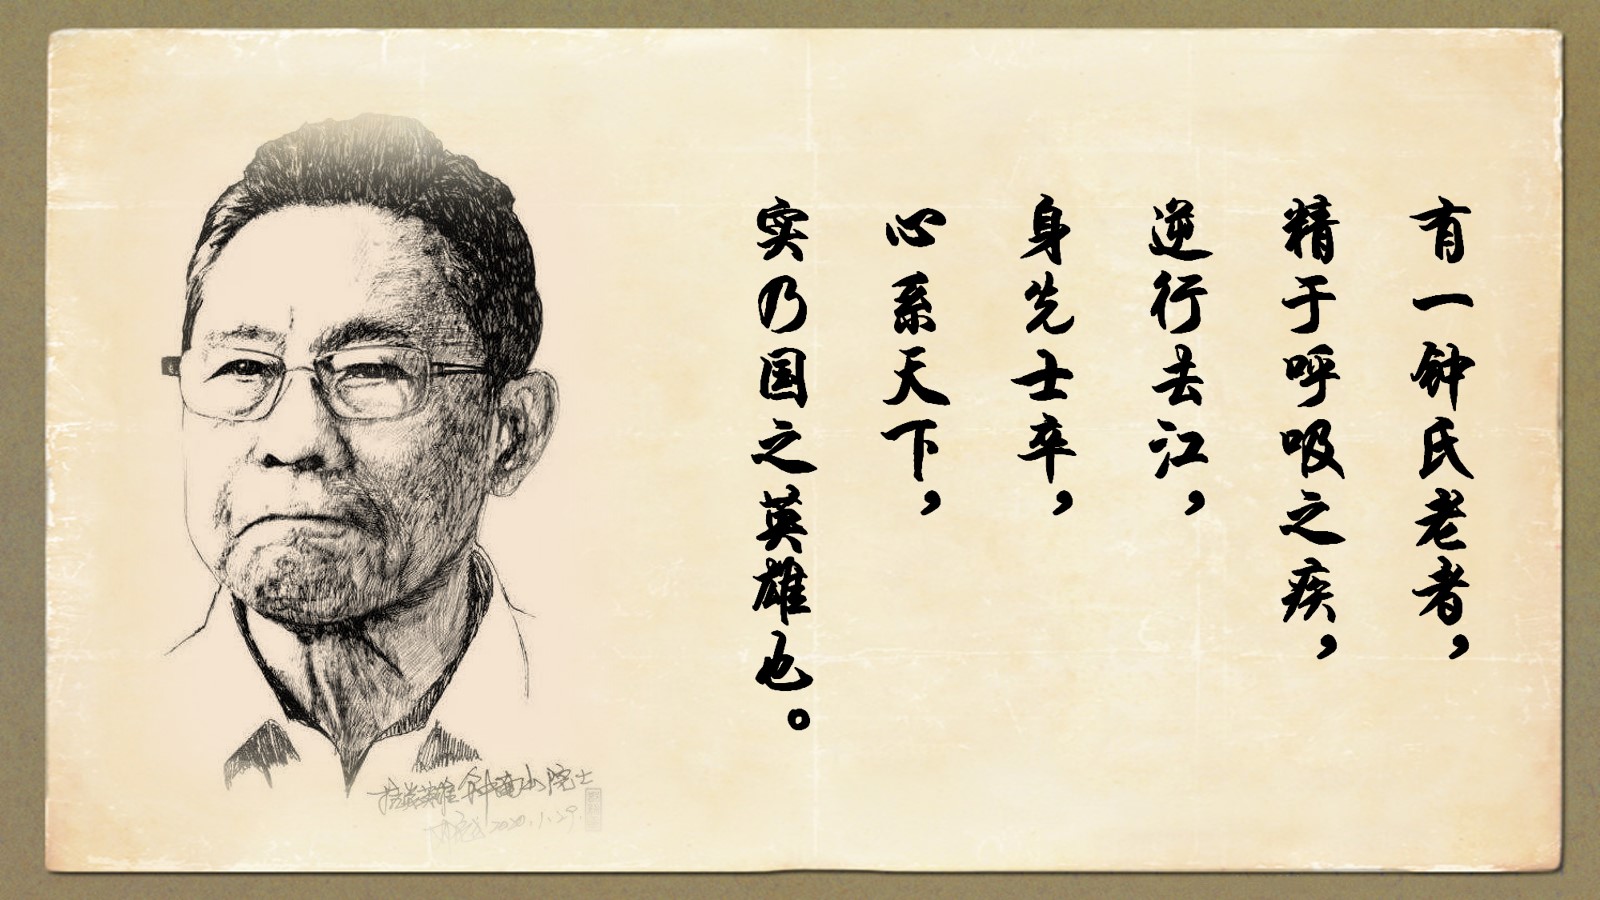 有一钟氏老者，
精于呼吸之疾，
逆行去江，
身先士卒，
心系天下，
实乃国之英雄也。
抗炎英雄钟南山院士
2020.1.29.